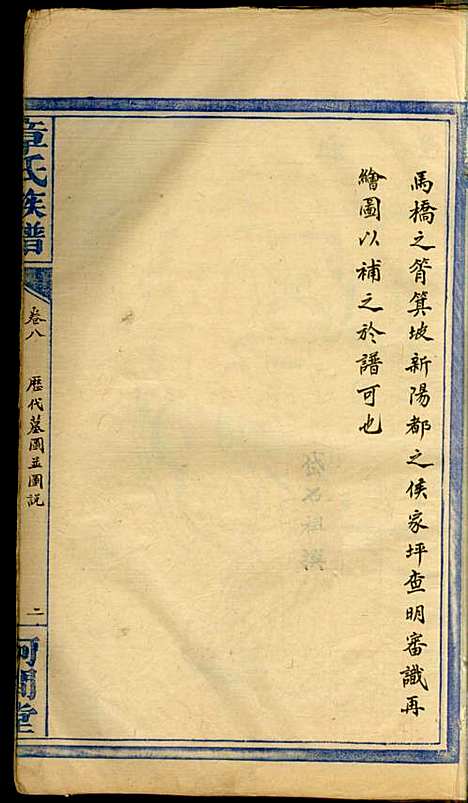 馬橋之筲箕坡新陽都之侯家坪查明審識再
繪圖以補之於譜可也
章氏族譜
卷八
歷代墓圖並圖説
二
河間堂